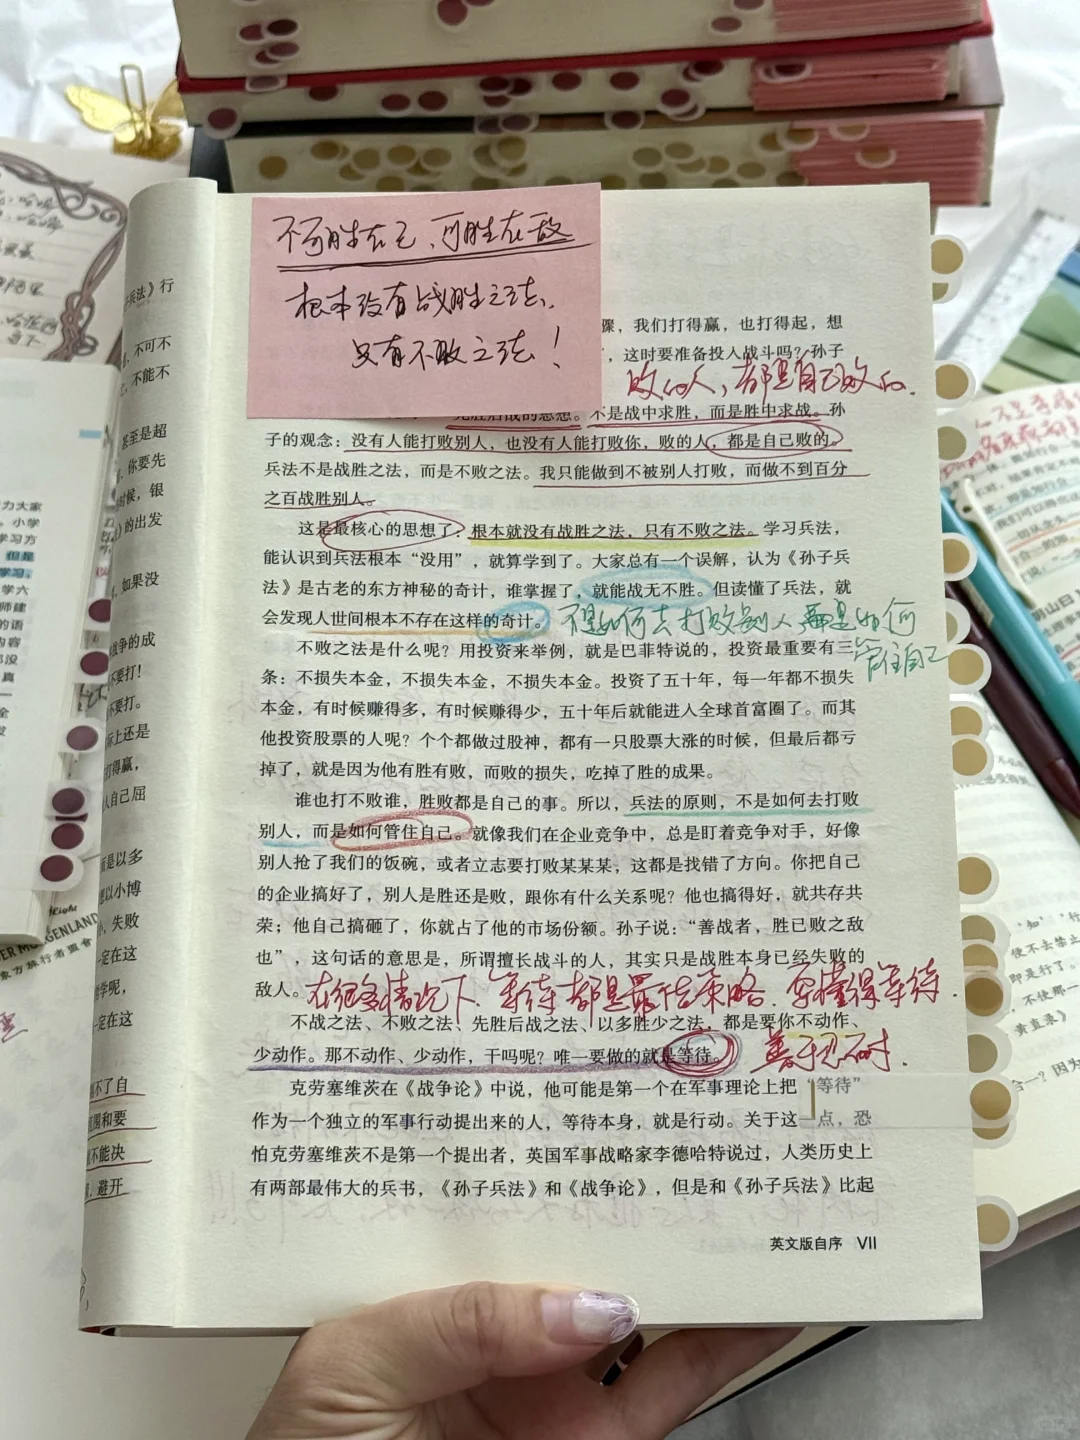 不可胜在己、可胜在敌
根本没有战胜之法、
只有不败之法！
骤，我们打得赢，也打得起，想
，这时要准备投入战斗吗？孙子
败的人，都是自己败的.
先胜后战的思想。不是战中求胜，而是胜中求战。孙
子的观念：没有人能打败别人，也没有人能打败你，败的人，都是自己败的。
兵法不是战胜之法，而是不败之法。我只能做到不被别人打败，而做不到百分
之百战胜别人。
这是最核心的思想了：根本就没有战胜之法，只有不败之法。学习兵法，
能认识到兵法根本“没用”，就算学到了。大家总有一个误解，认为《孙子兵
法》是古老的东方神秘的奇计，谁掌握了，就能战无不胜。但读懂了兵法，就
会发现人世间根本不存在这样的奇计。
不是如何去打败别人，而是如何
管住自己
不败之法是什么呢？用投资来举例，就是巴菲特说的，投资最重要有三
条：不损失本金，不损失本金，不损失本金。投资了五十年，每一年都不损失
本金，有时候赚得多，有时候赚得少，五十年后就能进入全球首富圈了。而其
他投资股票的人呢？个个都做过股神，都有一只股票大涨的时候，但最后都亏
掉了，就是因为他有胜有败，而败的损失，吃掉了胜的成果。
谁也打不败谁，胜败都是自己的事。所以，兵法的原则，不是如何去打败
别人，而是如何管住自己。就像我们在企业竞争中，总是盯着竞争对手，好像
别人抢了我们的饭碗，或者立志要打败某某某，这都是找错了方向。你把自己
的企业搞好了，别人是胜还是败，跟你有什么关系呢？他也搞得好，就共存共
荣；他自己搞砸了，你就占了他的市场份额。孙子说：“善战者，胜已败之敌
也”，这句话的意思是，所谓擅长战斗的人，其实只是战胜本身已经失败的
敌人。
在很多情况下、等待都是最佳策略.要懂得等待.
善于忍耐.
不战之法、不败之法、先胜后战之法、以多胜少之法，都是要你不动作、
少动作。那不动作、少动作，干吗呢？唯一要做的就是等待。
克劳塞维茨在《战争论》中说，他可能是第一个在军事理论上把“等待”
作为一个独立的军事行动提出来的人，等待本身，就是行动。关于这一点，恐
怕克劳塞维茨不是第一个提出者，英国军事战略家李德哈特说过，人类历史上
有两部最伟大的兵书，《孙子兵法》和《战争论》，但是和《孙子兵法》比起
英文版自序 VII
子兵法》行
，不可不
，不能不
甚至是超
，你要先
时候，银
的出发
，如果没
战争的成
不要打！
不要打。
际上还是
打得赢，
人自己屈
而是以多
想以小博
，失败
一定在这
哲学呢，
一定在这
不了自
范围和要
不能决
，避开